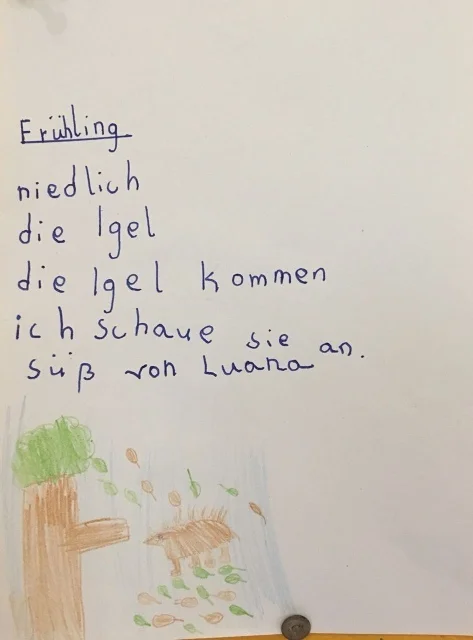 Frühling
niedlich
die Igel
die Igel kommen
ich schaue sie an.
süß von Luana